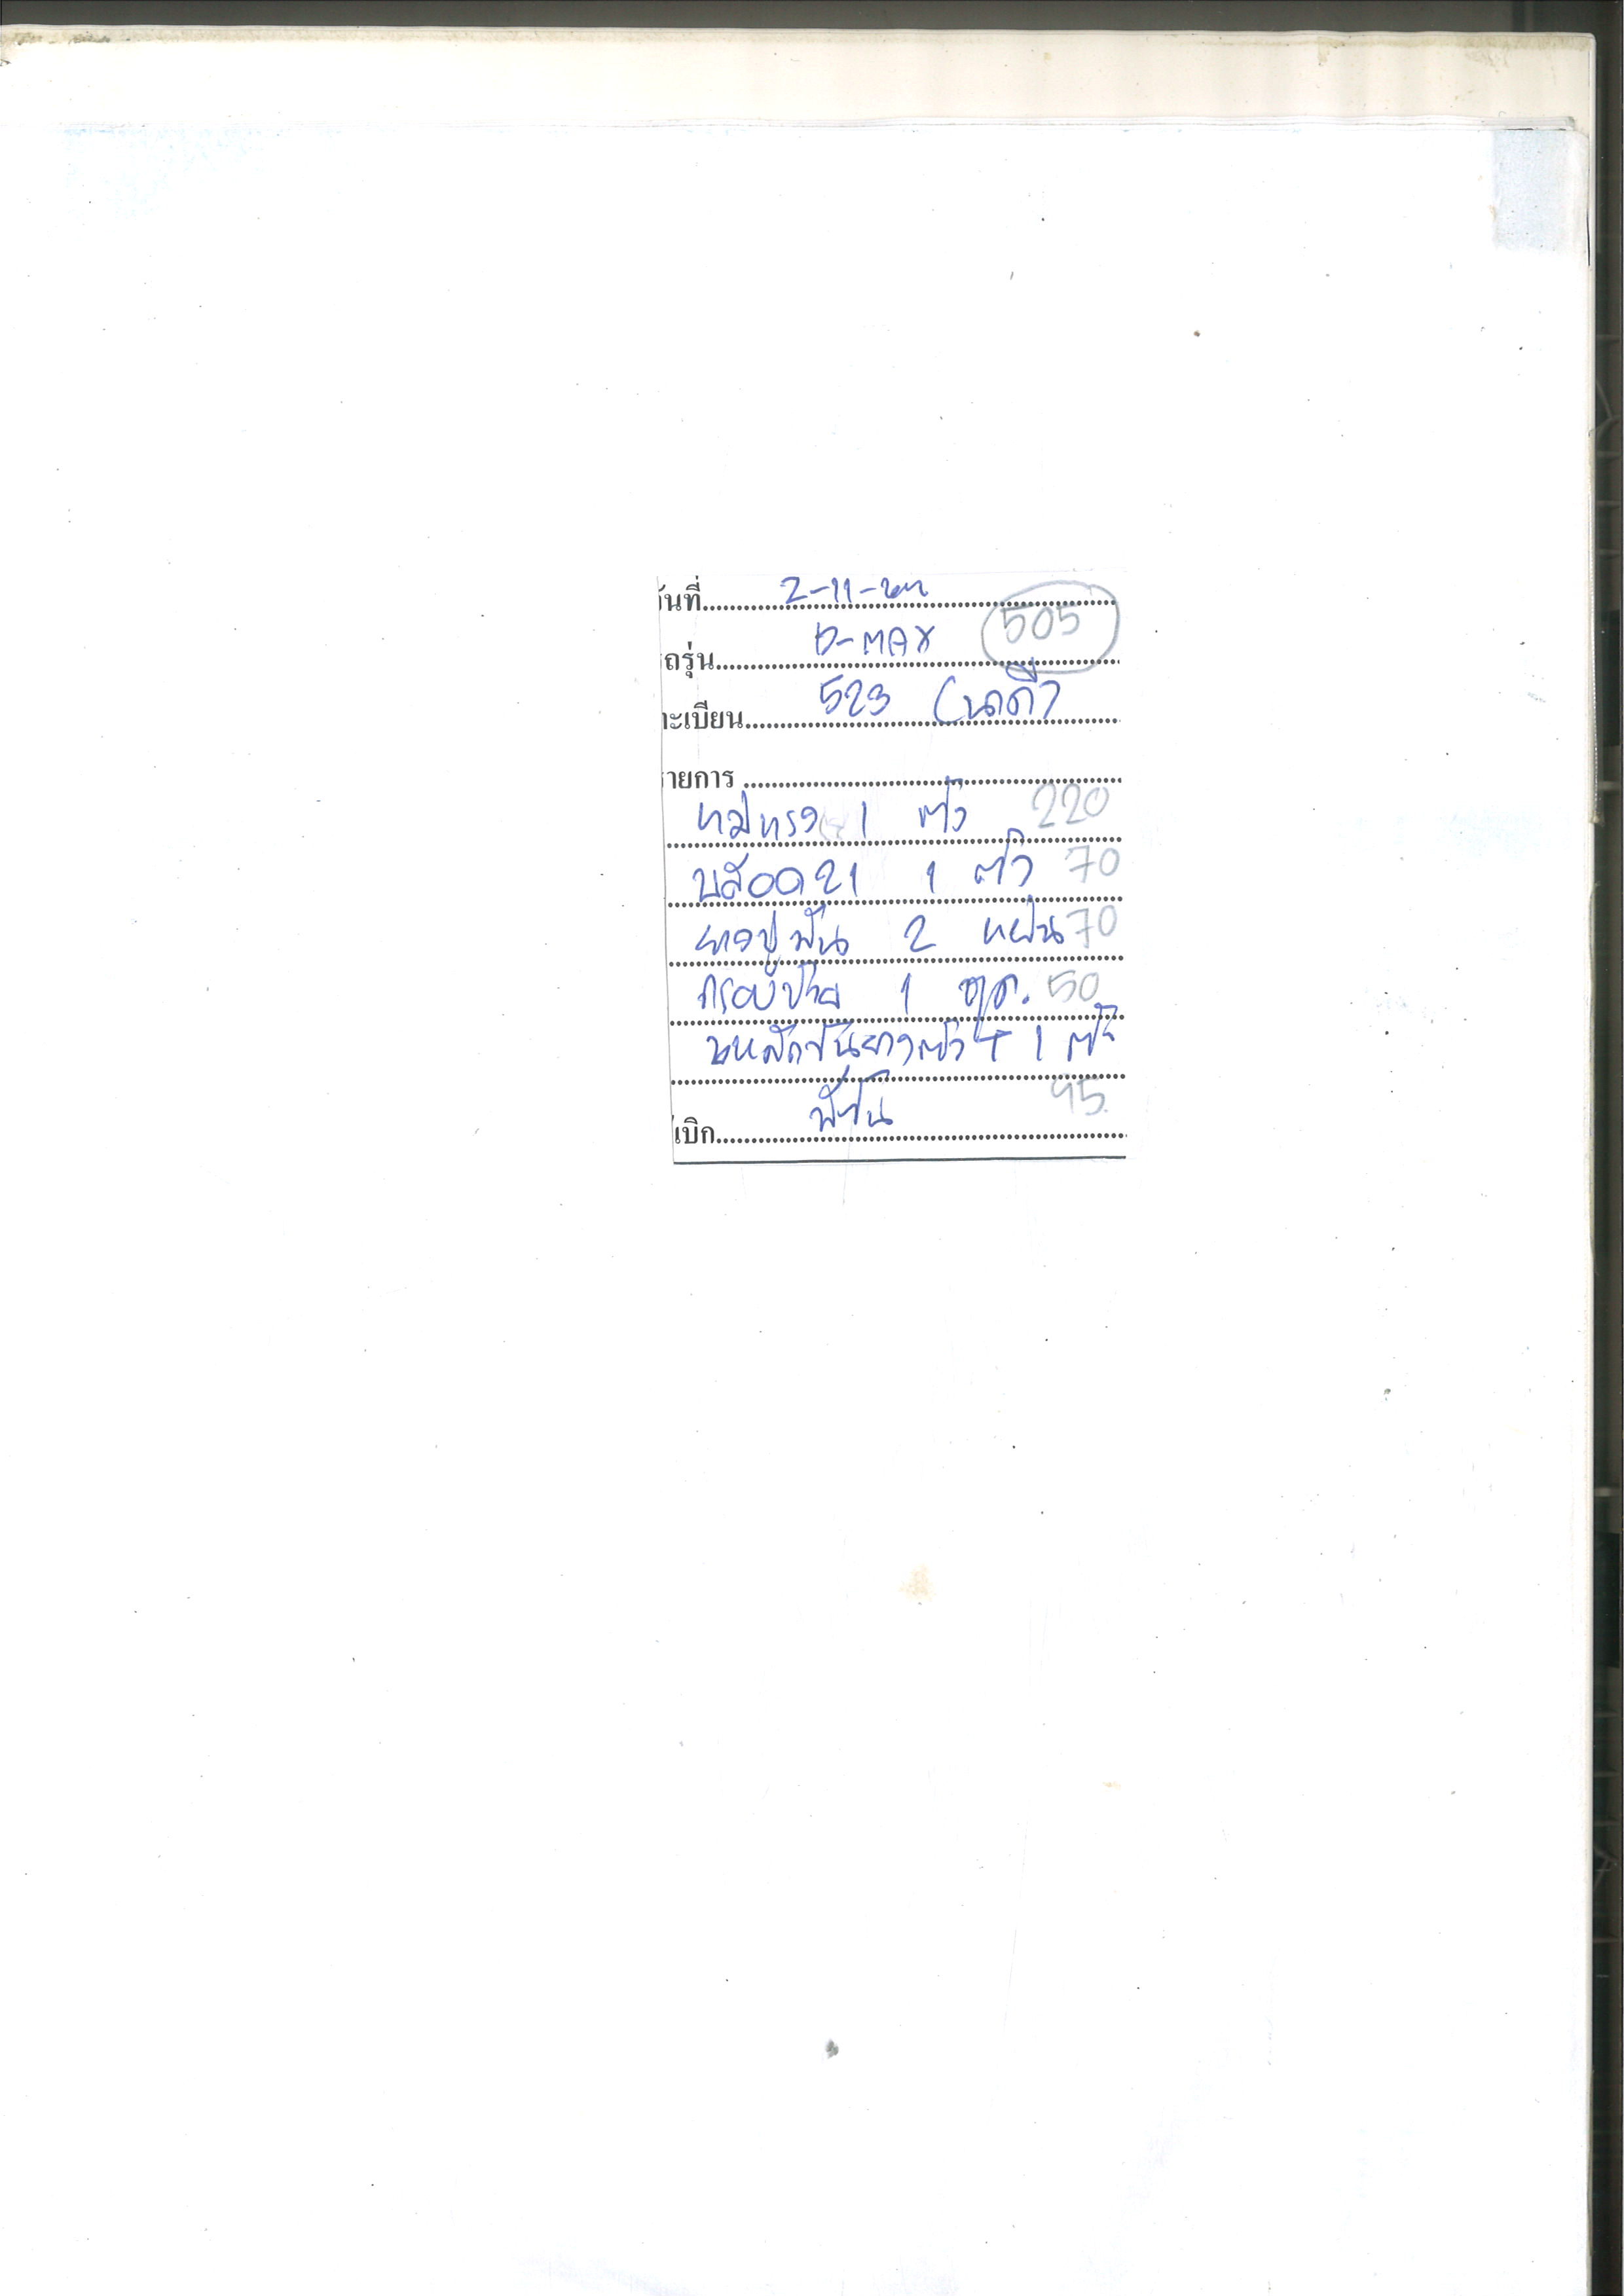 วันที่ 2-11-๖๗
รถรุ่น D-MAX 505
ทะเบียน 523 (นกดี)
รายการ
แม่แรง 1 ตัว 220
บล๊อค 21 1 ตัว 70
ยางปูพื้น 2 แผ่น 70
กรอบป้าย 1 ชุด. 50
เหล็กขันยางตัว T 1 ตัว
95
เบิก